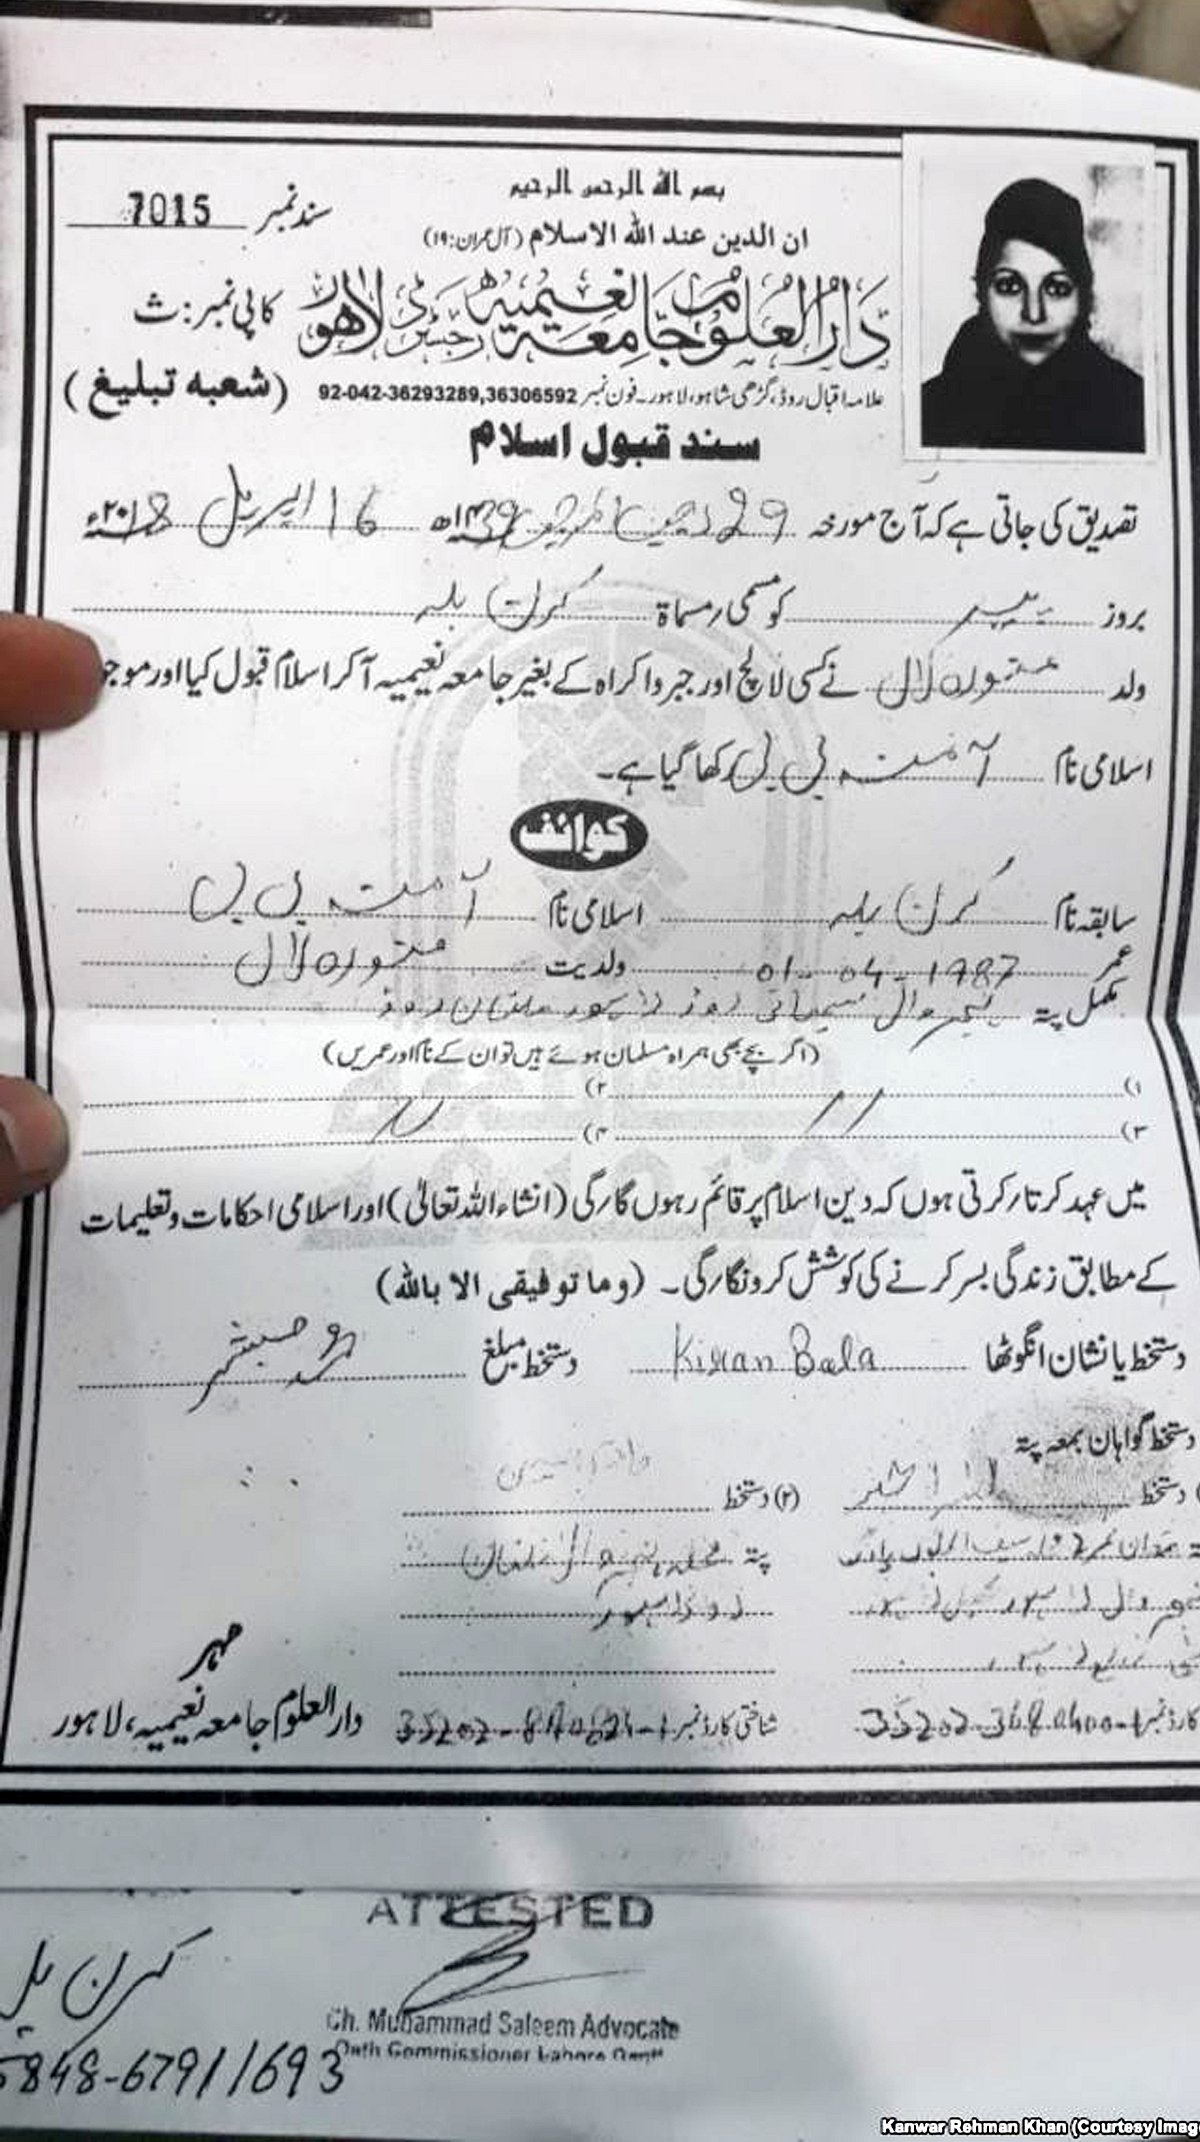 بسم الله الرحمن الرحيم
سند نمبر 7015
ان الدين عند الله الاسلام (آل عمران:۱۹)
دَارُالعُلُومْ جَامِعَہ نَعِیْمِیَہ رجسٹرڈ لاهور
کاپی نمبر: ث
(شعبہ تبلیغ)
علامہ اقبال روڈ، گڑھی شاہو، لاہور۔ فون نمبر 92-042-36293289,36306592
سند قبول اسلام
تصدیق کی جاتی ہے کہ آج مورخہ 29 رجب المرجب ۱۴39ھ 16 اپریل ۲۰۱8ء
بروز پیر کو مسمی رمسماۃ کرن بلہ
ولد منوہر لال نے کسی لالچ اور جبر و اکراہ کے بغیر جامعہ نعیمیہ آکر اسلام قبول کیا اور موجو
اسلامی نام آمنہ بی بی رکھا گیا ہے۔
کوائف
سابقہ نام کرن بلہ اسلامی نام آمنہ بی بی
عمر 01-04-1987 ولدیت منوہر لال
مکمل پتہ روڈ لاہور ملتان روڈ
(اگر بچے بھی ہمراہ مسلمان ہوئے ہیں تو ان کے نام اور عمریں)
۱) ۲)
۳) // ۴) //
میں عہد کرتا رکرتی ہوں کہ دین اسلام پر قائم رہوں گا رگی (انشاء اللہ تعالیٰ) اور اسلامی احکامات و تعلیمات
کے مطابق زندگی بسر کرنے کی کوشش کرونگا رگی۔ (وما توفيقى الا بالله)
دستخط یا نشان انگوٹھا Kiran Bala دستخط مبلغ
دستخط گواہان بمعہ پتہ
) دستخط (۲) دستخط
پتہ
روڈ لاہور
مہر
کارڈ نمبر 35202-3680400-1 شناختی کارڈ نمبر
دارالعلوم جامعہ نعیمیہ، لاہور
ATTESTED
کرن بلہ
Ch. Muhammad Saleem Advocate
Oath Commissioner Lahore Cantt
5848-6791169 3
Kanwar Rehman Khan (Courtesy Imag